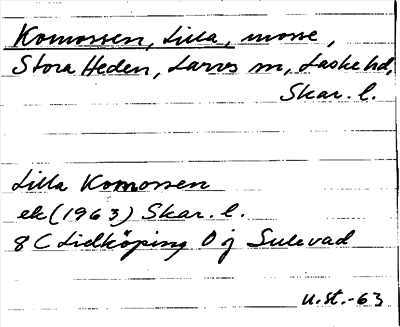 Komossen, Lilla, mosse,
Stora Heden, Larvs sn, Laske hd,
Skar. l.
Lilla Komossen
ek (1963) Skar. l.
8 C Lidköping 0 j Sulevad
u.st.-63